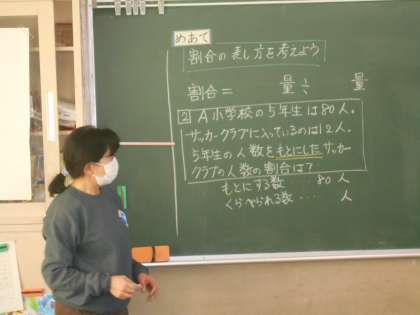 めあて
割合の表し方を考えよう
割合= 量÷ 量
2 A小学校の5年生は80人。
サッカークラブに入っているのは12人。
5年生の人数をもとにしたサッカー
クラブの人数の割合は?
もとにする数 80人
くらべられる数… 人